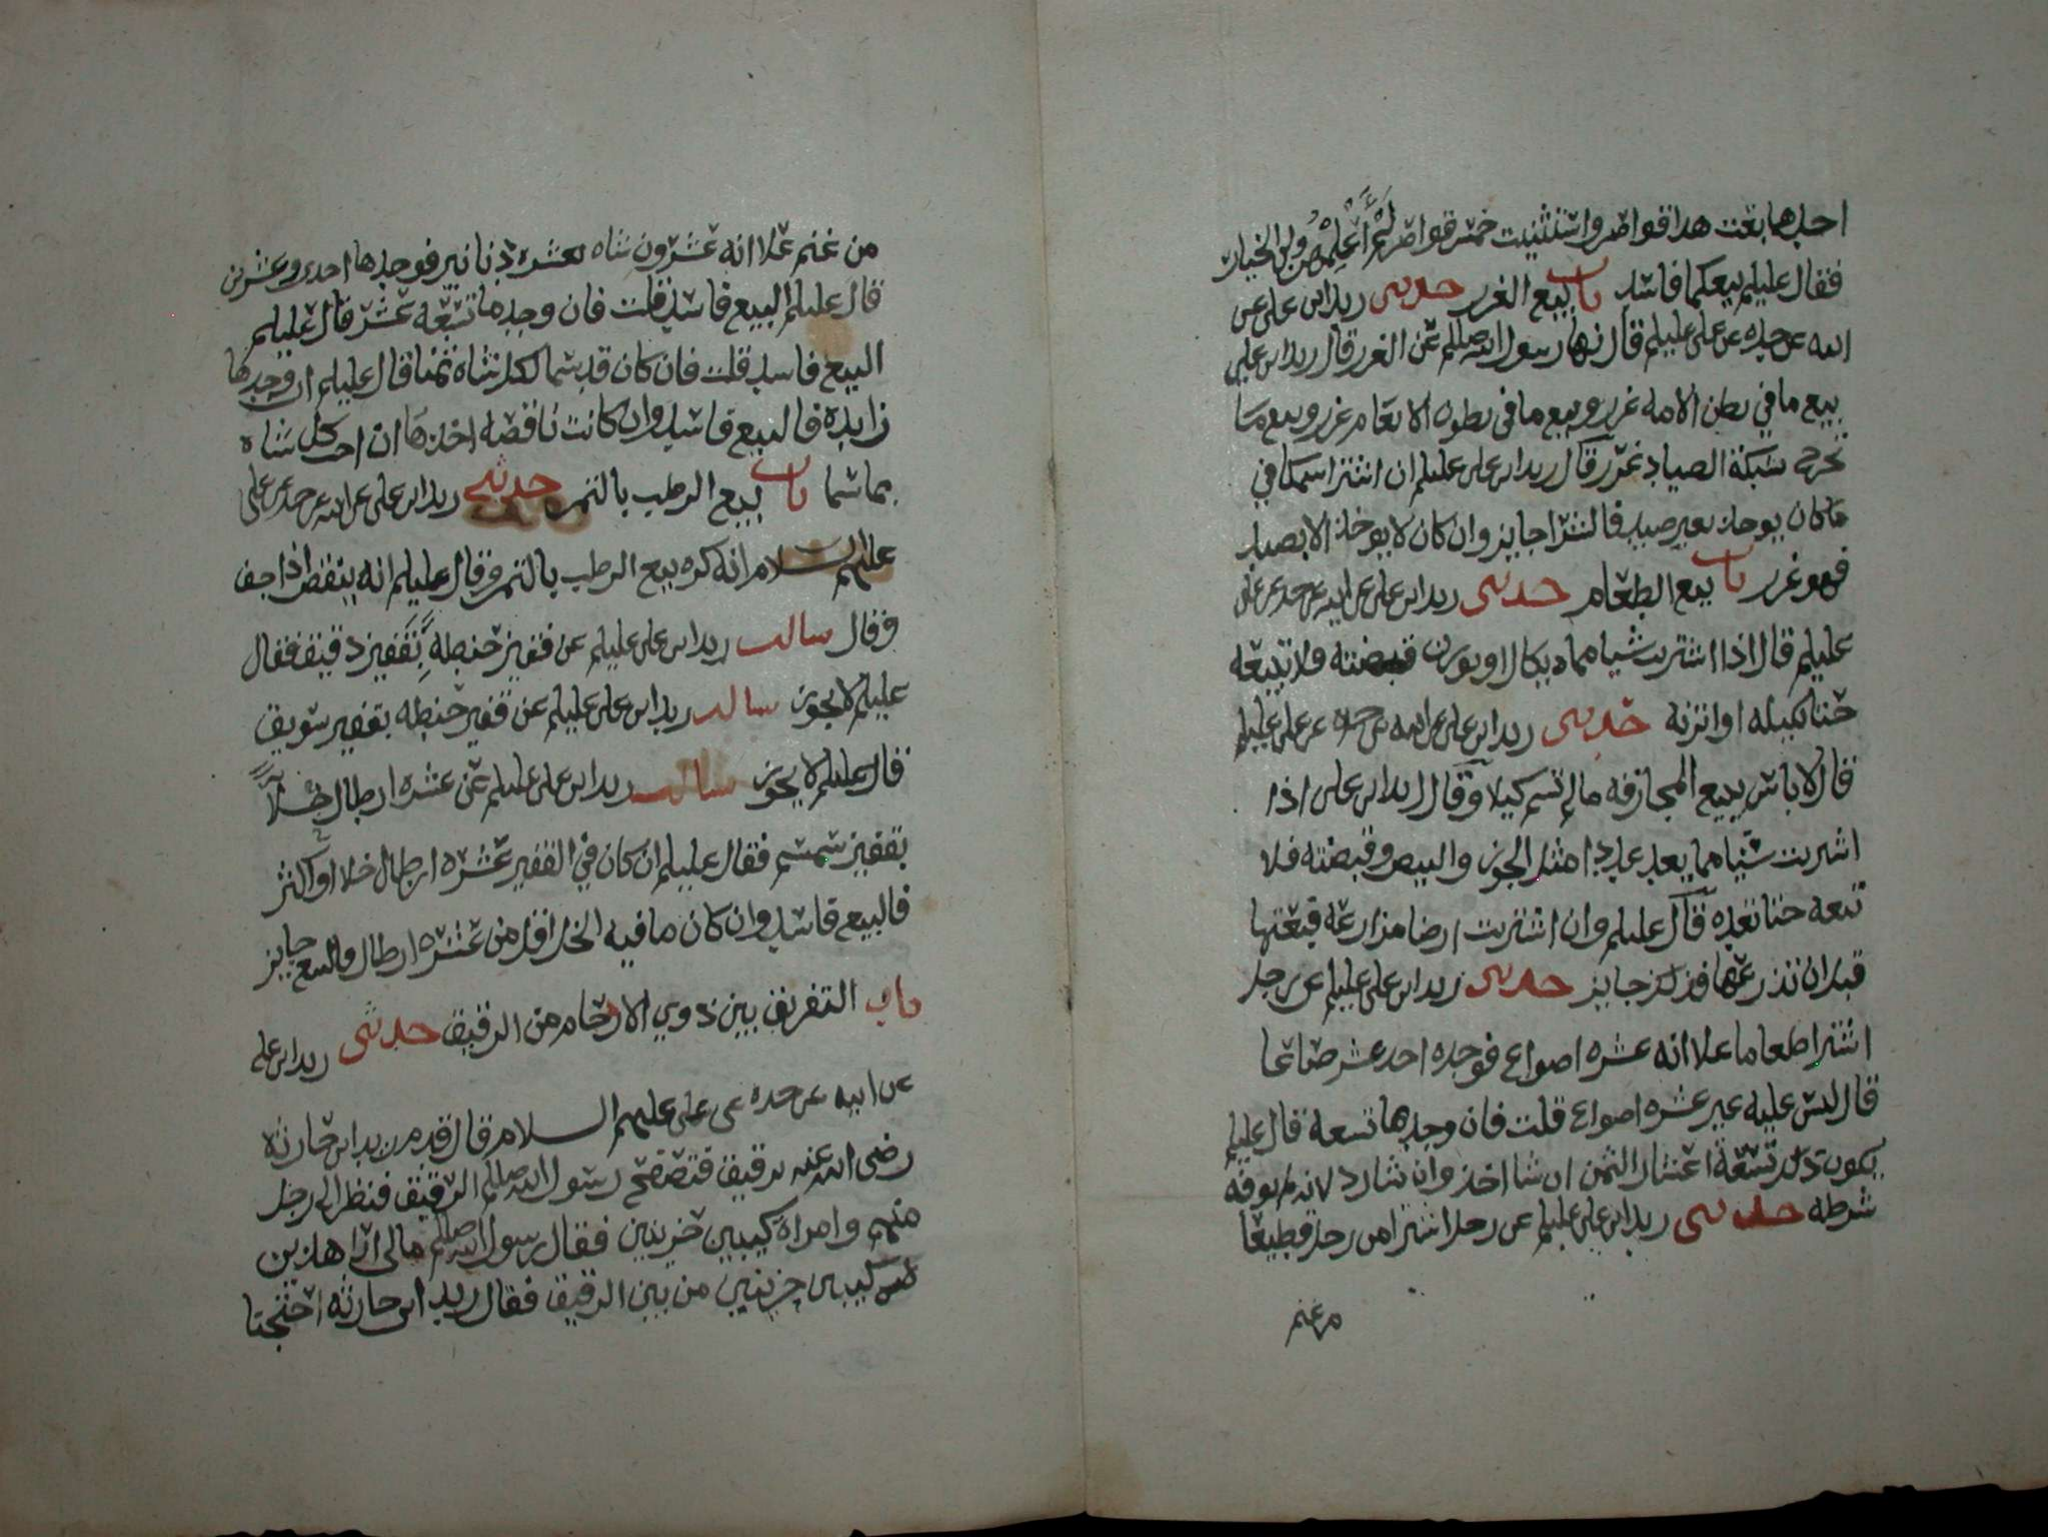 احدهما بعت هذا قواصر واستثنيت خمس قواصر لم اعلمهن ولي الخيار
فقال عليلم بيعكما فاسد باب بيع الغرر حدثني زيد ابن علي عن
ابيه عن جده عن علي عليلم قال نها رسول الله صللم عن الغرر قال زيد ابن علي
بيع ما في بطن الامه غرر وبيع ما في بطون الانعام غرر وبيع ما
تخرج شبكة الصياد غرر قال زيد ابن علي عليلم ان اشترا سمكا في
ما كان يوخذ بغير صيد فالشرا جايز وان كان لا يوخذ الا بصيد
فهو غرر باب بيع الطعام حدثني زيد ابن علي عن ابيه عن جده عن علي
عليلم قال اذا اشتريت شيا مما يكال او يوزن قبضته فلا تبيعه
حتا تكيله او اتزنه حدثني زيد ابن علي عن ابيه عن جده عن علي عليلم
قال لا باس ببيع المجازفه مالم تسم كيلا وقال زيد ابن علي اذا
اشريت شيا مما يعد عددا مثل الجوز والبيض وقبضته فلا
تبعه حتا تعده قال عليلم وان اشتريت ارضا مزارعه فبعتها
قبل ان تذرعها فذلك جايز حدثني زيد ابن علي عليلم عن رجل
اشترا طعاما علا انه عشره اصواع فوجده احد عشر صاعا
قال ليس عليه غير عشره اصواع قلت فان وجدها تسعه قال عليلم
يكون ذلك تسعة اعشار الثمن ان شا اخذ وان شا رد لانه لم يوفه
شرطه حدثني زيد ابن علي عليلم عن رجل اشترا من رجل قطيعا
من غنم
من غنم علا انه عشرون شاه بعشره دنانير فوجدها احدى وعشرين
قال عليلم البيع فاسد قلت فان وجدها تسعه عشر قال عليلم
البيع فاسد قلت فان كان قد سما لكل شاة ثمنا قال عليلم ان وجدها
زايده فالبيع فاسد وان كانت ناقصه اخذها ان احب كل شاه
بما سما باب بيع الرطب بالتمر حدثني زيد ابن علي عن ابيه عن جده عن علي
عليهم السلام انه كره بيع الرطب بالتمر وقال عليلم انه ينقص اذا جف
وقال سالت زيد ابن علي عليلم عن قفيز حنطه بقفيز دقيق فقال
عليلم لا يجوز سالت زيد ابن علي عليلم عن قفيز حنطه بقفيز سويق
قال عليلم لا يجوز سالت زيد ابن علي عليلم عن عشره ارطال خلا
بقفيز سمسم فقال عليلم ان كان في القفيز عشره ارطال خلا او اكثر
فالبيع فاسد وان كان ما فيه الخل اقل من عشره ارطال فالبيع جايز
باب التفريق بين ذوي الارحام من الرقيق حدثني زيد ابن علي
عن ابيه عن جده عن علي عليهم السلام قال قدم زيد ابن حارثه
رضى الله عنه برقيق فتصفح رسول الله صللم الرقيق فنظر الى رجل
منهم وامراة كيبين حزينين فقال رسول الله صللم مالي ارا هذين
كيبين حزينين من بين الرقيق فقال زيد ابن حارثه احتجنا